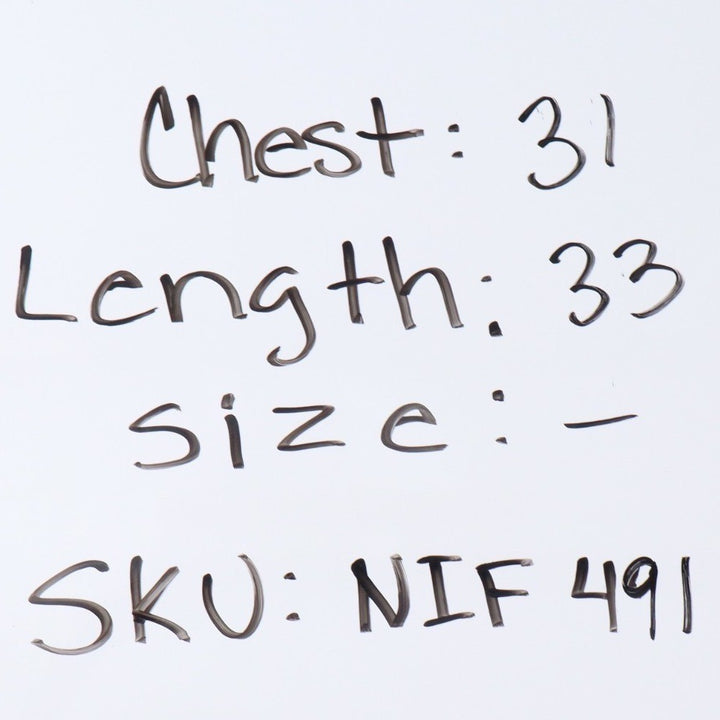 Chest: 31
Length: 33
Size: -
SKU: NIF 491